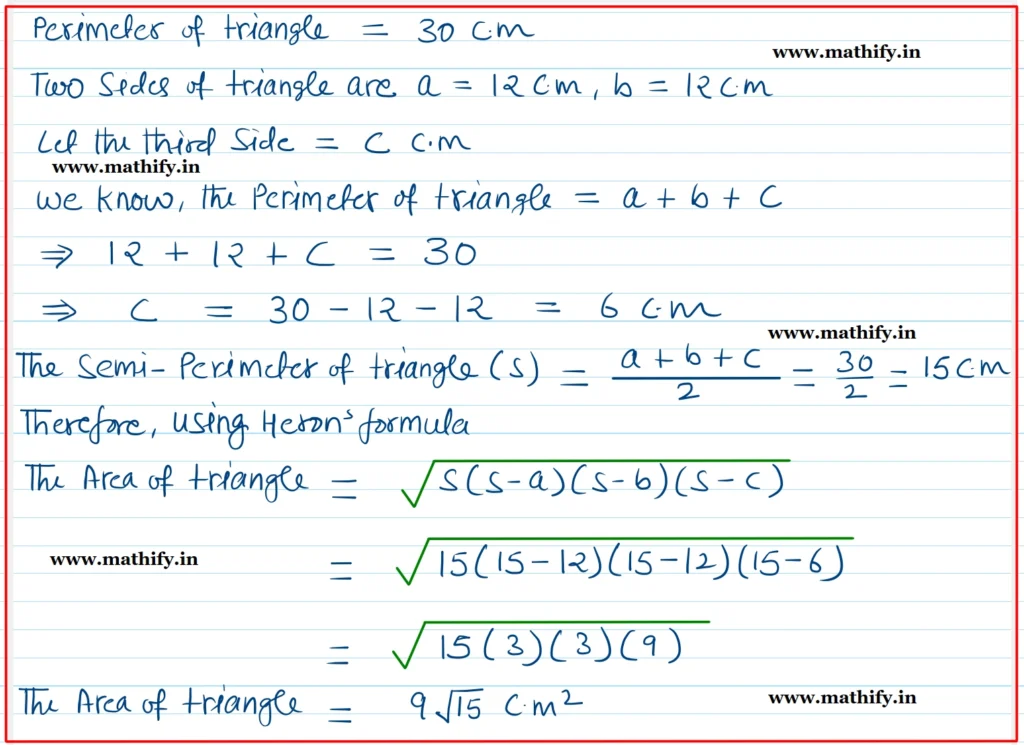 Perimeter of triangle = 30 c.m
www.mathify.in
Two sides of triangle are a = 12 c.m, b = 12 c.m
Let the third side = c c.m
www.mathify.in
we know, the Perimeter of triangle = a + b + c
⇒ 12 + 12 + c = 30
⇒ c = 30 - 12 - 12 = 6 c.m
www.mathify.in
The Semi-Perimeter of triangle (s) = (a + b + c)/2 = 30/2 = 15 c.m
Therefore, using Heron's formula
The Area of triangle = √s(s-a)(s-b)(s-c)
www.mathify.in
= √15(15-12)(15-12)(15-6)
= √15(3)(3)(9)
The Area of triangle = 9√15 c.m²
www.mathify.in